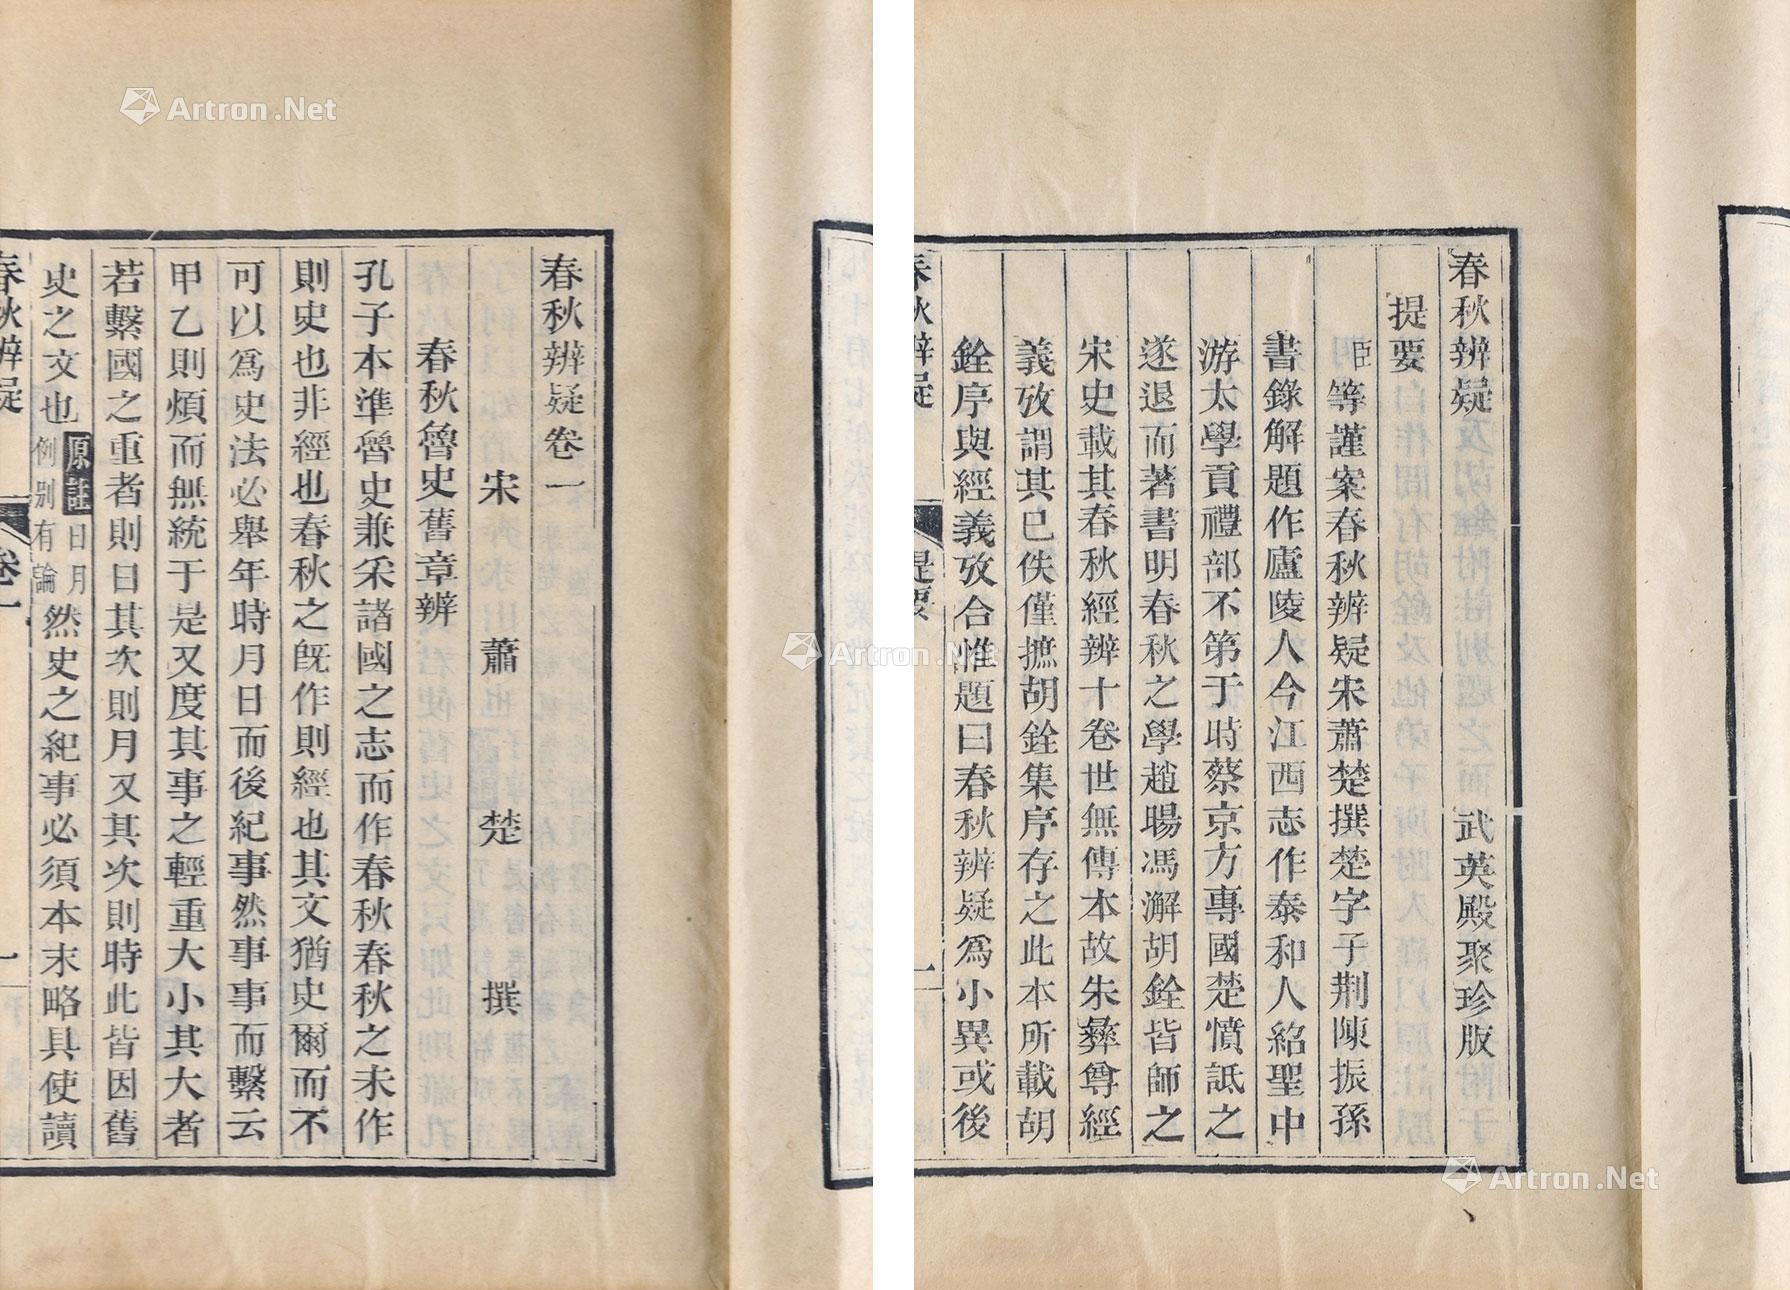 春秋辨疑
武英殿聚珍版
提要
臣等謹案春秋辨疑宋蕭楚撰楚字子荆陳振孫
書錄解題作廬陵人今江西志作泰和人紹聖中
游太學貢禮部不第于時蔡京方專國楚憤詆之
遂退而著書明春秋之學趙暘馮澥胡銓皆師之
宋史載其春秋經辨十卷世無傳本故朱彝尊經
義攷謂其已佚僅摭胡銓集序存之此本所載胡
銓序與經義攷合惟題曰春秋辨疑爲小異或後
春秋辨疑
提要
一
春秋辨疑卷一
宋 蕭 楚 撰
春秋魯史舊章辨
孔子本準魯史兼采諸國之志而作春秋春秋之未作
則史也非經也春秋之既作則經也其文猶史爾而不
可以爲史法必舉年時月日而後紀事然事事而繫云
甲乙則煩而無統于是又度其事之輕重大小其大者
若繫國之重者則日其次則月又其次則時此皆因舊
史之文也原註日月例别有論然史之紀事必須本末略具使讀
春秋辨疑
卷一
一
Artron.Net
Artron.Net
Artron.Net